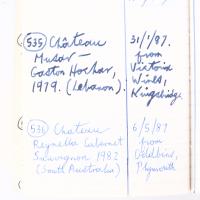 (535) Château
Musar –
Gaston Hochar,
1979. (Lebanon).
31/1/87.
from
Victoria
Wines,
Kingsbridge.
(536) Chateau
Reynella Cabernet
Sauvignon 1982
(South Australia)
6/5/87
from
Oddbins,
Plymouth